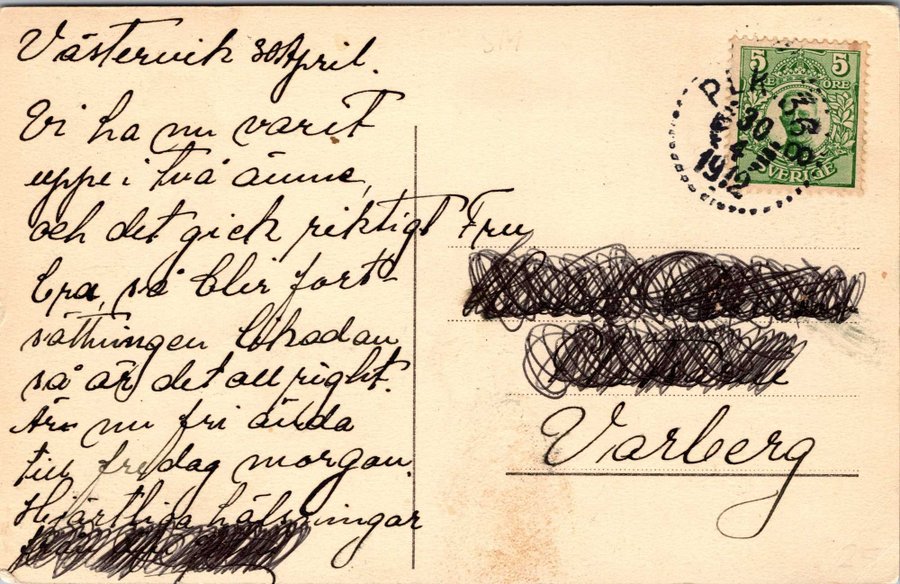 Västervik 30 April.
Vi ha nu varit
uppe i två ämne,
och det gick riktigt
bra, så blir fort-
sättningen likadan
så är det all right.
Är nu fri ända
till fredag morgon.
Hjärtliga hälsningar
5 5
ÖRE ÖRE
SVERIGE
30
4
1912
Fru
Varberg